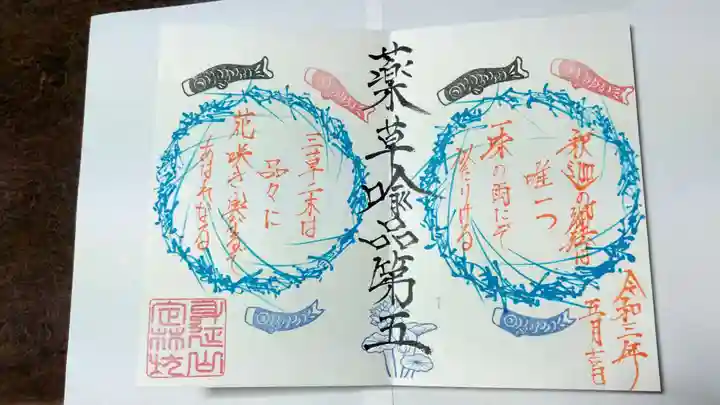 令和三年
五月吉日
釈迦の御法は
唯一つ
一味の雨にぞ
似たりける
薬草喩品第五
三草二木は
品々に
花咲き実なるぞ
あはれなる
身延山
定林坊